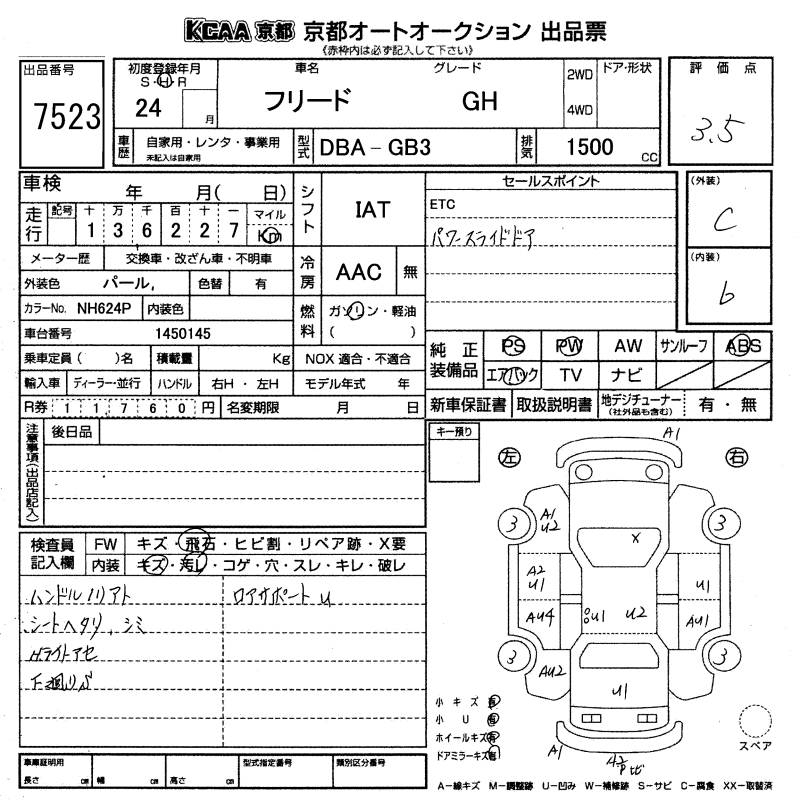 KCAA 京都 京都オートオークション 出品票
《赤枠内は必ず記入して下さい》
出品番号
7523
初度登録年月
S・H・R
24 月
車名
フリード
グレード
GH
2WD
4WD
ドア・形状
評価点
3.5
車歴
自家用・レンタ・事業用
未記入は自家用
型式
DBA-GB3
排気
1500 CC
車検 年 月( 日)
走行
記号 十 万 千 百 十 一 マイル
1 3 6 2 2 7 Km
メーター歴 交換車・改ざん車・不明車
外装色 パール, 色替 有
カラーNo. NH624P 内装色
車台番号 1450145
乗車定員( )名 積載量 Kg
輸入車 ディーラー・並行 ハンドル 右H・左H
R券 1 1, 7 6 0 円 名変期限 月 日
シフト
IAT
冷房
AAC 無
燃料
ガソリン・軽油
( )
NOX 適合・不適合
モデル年式 年
セールスポイント
ETC
パワースライドドア
(外装)
C
(内装)
b
純正装備品
PS PW AW サンルーフ ABS
エアバック TV ナビ
新車保証書 取扱説明書 地デジチューナー
(社外品も含む)
有・無
注意事項(出品店記入)
後日品
キー預り
検査員記入欄
FW キズ・飛石・ヒビ割・リペア跡・X要
内装 キズ・汚レ・コゲ・穴・スレ・キレ・破レ
ハンドルノリアト
ロアサポートU
シートヘタリ、シミ
Hライトアセ
下廻りサビ
左
右
A1
3
A1
U2
X
3
A2
U1
U1
AU4
U1
U2
AU1
3
AU2
3
U1
A1
小キズ 有
小U 有
ホイールキズ有
ドアミラーキズ有
スペア
A-線キズ M-調整跡 U-凹み W-補修跡 S-サビ C-腐食 XX-取替済
車庫証明用
長さ cm 幅 cm 高さ cm
型式指定番号
類別区分番号